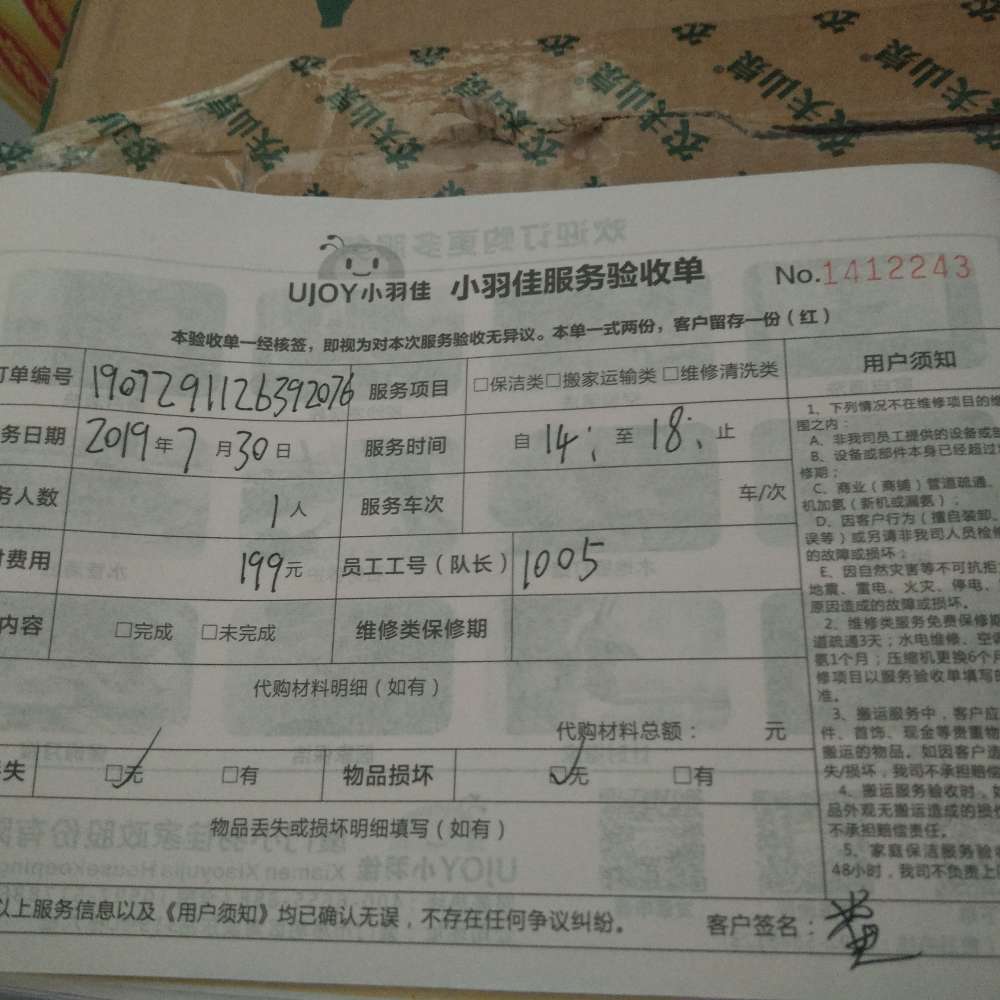 农夫山泉
UJOY小羽佳 小羽佳服务验收单 No.1412243
本验收单一经核签，即视为对本次服务验收无异议。本单一式两份，客户留存一份（红）
订单编号 1907291126392076 服务项目 □保洁类□搬家运输类 □维修清洗类
务日期 2019年7月30日 服务时间 自14: 至18: 止
务人数 1人 服务车次 车/次
费用 199元 员工工号（队长） 1005
内容 □完成 □未完成 维修类保修期
代购材料明细（如有）
代购材料总额： 元
失 □无 □有 物品损坏 □无 □有
物品丢失或损坏明细填写（如有）
以上服务信息以及《用户须知》均已确认无误，不存在任何争议纠纷。 客户签名：
用户须知
1、下列情况不在维修项目的维
围之内：
A、非我司员工提供的设备或
B、设备或部件本身已经超过
修期；
C、商业（商铺）管道疏通、
机加氨（新机或漏氨）；
D、因客户行为（擅自装卸、
误等）或另请非我司人员检修
的故障或损坏；
E、因自然灾害等不可抗拒
地震、雷电、火灾、停电、
原因造成的故障或损坏。
2、维修类服务免费保修期
道疏通3天；水电维修、空
氨1个月；压缩机更换6个月
修项目以服务验收单填写的
准。
3、搬运服务中，客户应
件、首饰、现金等贵重物
搬运的物品。如因客户
失/损坏，我司不承担赔偿
4、搬运服务验收时，如
品外观无搬运造成的损
不承担赔偿责任。
5、家庭保洁服务验收
48小时，我司不负责上